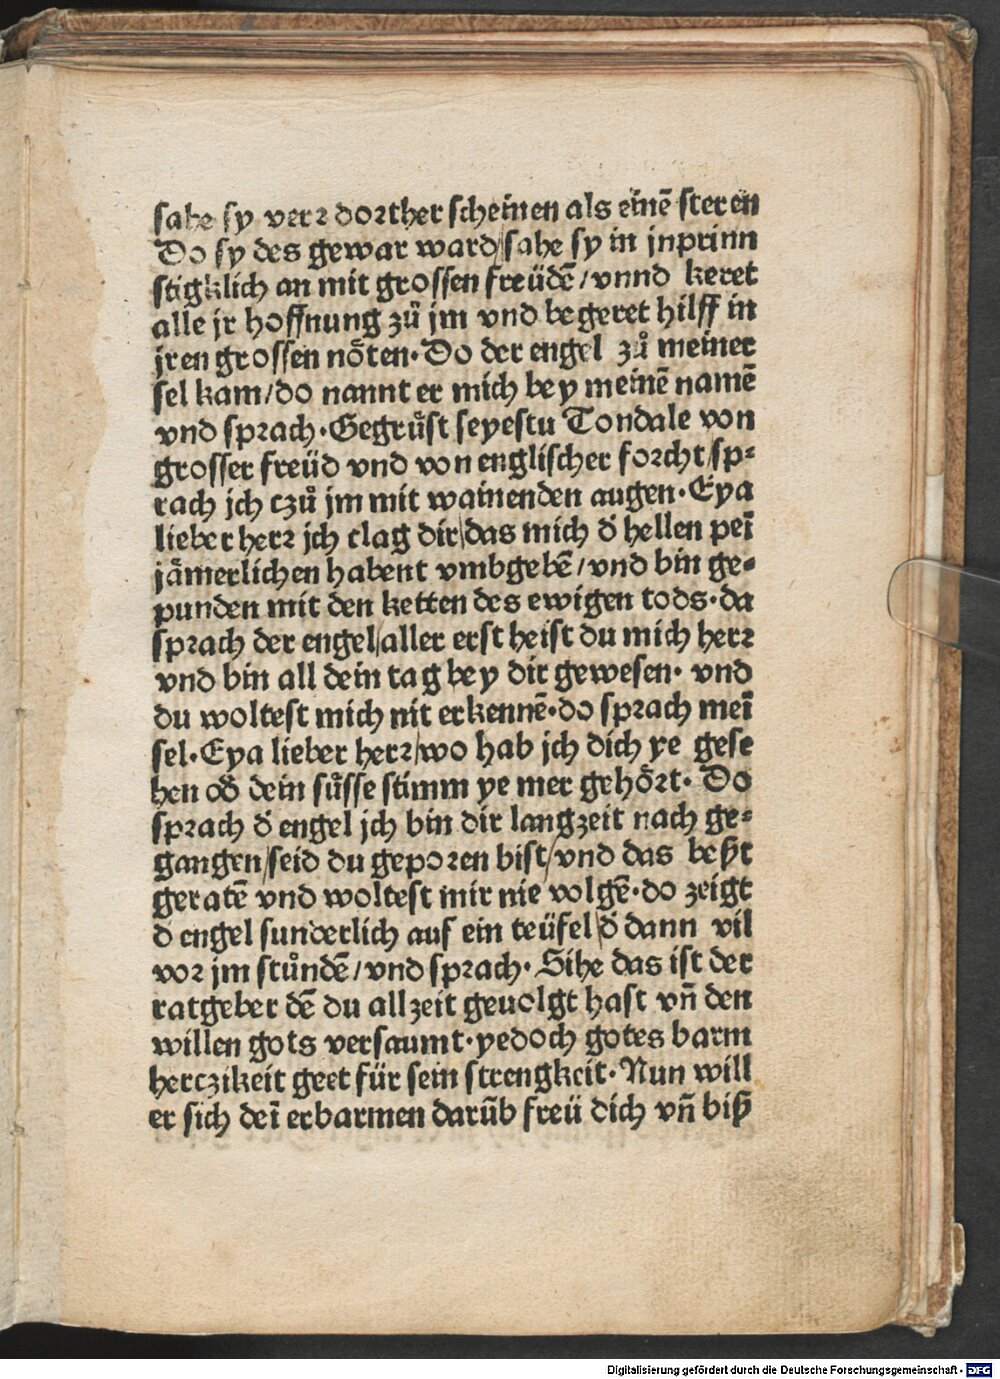 sahe sy verꝛ doꝛther scheinen als einē steren
Do sy des gewar ward/sahe sy in jnprinn
stigklich an mit grossen freüdē/vnnd keret
alle jr hoffnung zů jm vnd begeret hilff in
jren grossen nöten·Do der engel zů meiner
sel kam/do nannt er mich bey meinē namē
vnd spꝛach·Gegrüst seyestu Tondale von
grosser freüd vnd von englischer foꝛcht/sp⸗
rach jch czů jm mit wainenden augen·Eya
lieber herꝛ jch clag dir/das mich d̄ hellen peī
jämerlichen habent vmbgebē/vnd bin ge⸗
punden mit den ketten des ewigen tods·da
spꝛach der engel/aller erst heist du mich herꝛ
vnd bin all dein tag bey dir gewesen· vnd
du woltest mich nit erkennē·do spꝛach meī
sel·Eya lieber herꝛ/wo hab jch dich ye gese
hen od̄ dein süsse stimm ye mer gehöꝛt· Do
spꝛach d̄ engel jch bin dir langzeit nach ge⸗
gangen/seid du gepoꝛen bist/vnd das beßt
geratē vnd woltest mir nie volgē·do zeigt
d̄ engel sunderlich auf ein teüfel/d̄ dann vil
voꝛ jm stůndē/vnd spꝛach· Sihe das ist der
ratgeber dē du allzeit geuolgt hast vn̄ den
willen gots versaumt·yedoch gotes barm
herczikeit geet für sein strengkeit·Nun will
er sich deī erbarmen darūb freü dich vn̄ biß
Digitalisierung gefördert durch die Deutsche Forschungsgemeinschaft - DFG